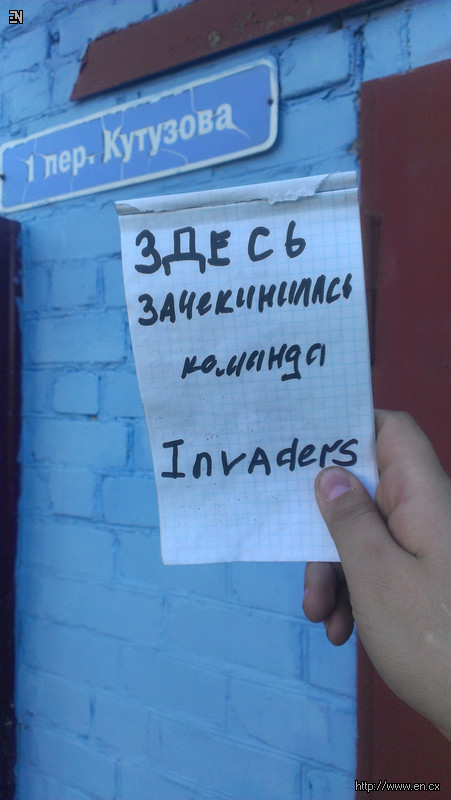 EN
1 пер. Кутузова
ЗДЕСЬ
ЗАЧЕКИНИЛАСЬ
команда
Invaders
http://www.en.cx